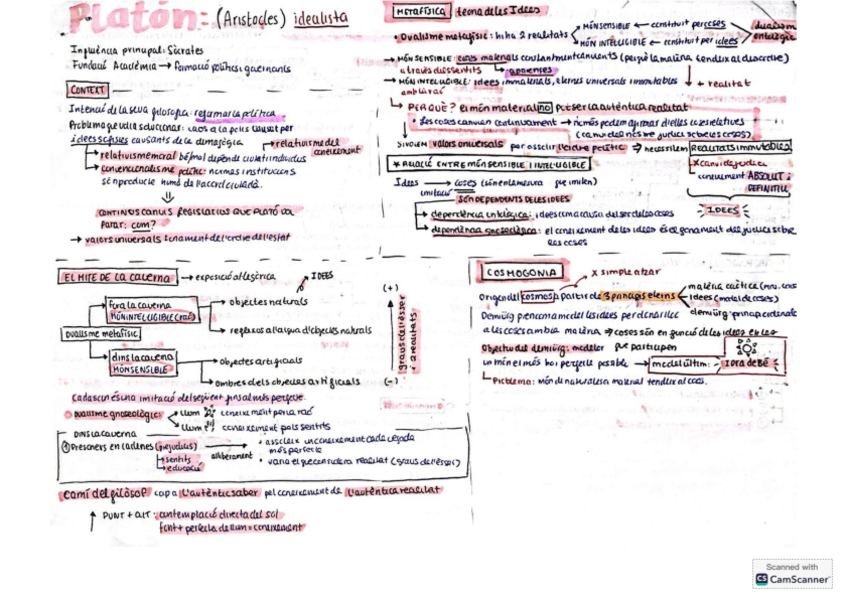 Platón: (Aristocles) idealista
Influència principal: Sòcrates
Fundació Acadèmia → formació polítics i governants
CONTEXT
Intenció de la seva filosofia: reformar la política
Problema que vol solucionar: caos a la polis causat per
idees sofistes causants de la demagògia
→ relativisme del coneixement
→ relativisme moral: bé/mal depèn de cada individu
→ convencionalisme polític: normes i institucions
són producte humà de l'acord
CONTINUOS CANVIS LEGISLATIUS QUE PLATÓ VOL
Parar: com?
→ valors universals fonament de l'ordre de l'estat
METAFÍSICA teoria de les Idees
• Dualisme metafísic: hi ha 2 realitats
MÓN SENSIBLE ← constituït per coses
MÓN INTEL·LIGIBLE ← constituït per idees
dualisme ontològic
→ MÓN SENSIBLE: coses materials constantment canviants (perquè la matèria tendeix al desordre)
a través dels sentits → aparences
→ MÓN INTELIGIBLE: idees immaterials, eternes universals immutables
amb la raó
+ realitat
↳ PER QUÈ? el món material no pot ser la autèntica realitat
• Les coses canvien contínuament → només podem afirmar d'elles coses relatives
SI VOLEM valors universals per assolir l'ordre polític → necessitem REALITATS IMMUTABLES
coneixement ABSOLUT i DEFINITIU
IDEES
* RELACIÓ ENTRE MÓN SENSIBLE I INTEL·LIGIBLE
Idees → coses (són en la mesura que imiten)
imitació
SÓN DEPENDENTS DE LES IDEES
→ dependència ontològica: idees com a causa del ser de les coses
→ dependència gnoseològica: el coneixement de les idees és el fonament del judici sobre
les coses
EL MITE DE LA CAVERNA → exposició al·legòrica
IDEES
fora la caverna
MÓN INTELIGIBLE (raó)
→ objectes naturals
→ reflexos a l'aigua d'objectes naturals
DUALISME METAFÍSIC
dins la caverna
MÓN SENSIBLE
→ objectes artificials
→ ombres dels objectes artificials
(+)
graus de l'ésser o realitats
(-)
Cadascun és una imitació del següent fins al més perfecte.
Dualisme gnoseològic:
llum coneixement per la raó
llum coneixement pels sentits
DINS LA CAVERNA
① Presoners en cadenes (prejudicis)
→ sentits
→ educació
alliberament
• assoleix un coneixement cada vegada
més perfecte
• varia el que considera realitat (graus de l'ésser)
camí del filòsof cap a l'autèntic saber pel coneixement de l'autèntica realitat
↑ PUNT + ALT: contemplació directa del sol
font + perfecta de llum = coneixement
COSMOGONIA
x simple atzar
Origen del cosmos a partir de 3 principis eterns
matèria caòtica
idees (model de coses)
demiürg: principi ordenador
Demiürg pren com a model les idees per ordenar les
a les coses amb la matèria → coses són en funció de les idees en les
que participen
Objectiu del demiürg: modelar
un món el més bo i perfecte possible → model últim: IDEA de BÉ
↳ Problema: món de naturalesa material tendeix al caos.
Scanned with
CS CamScanner